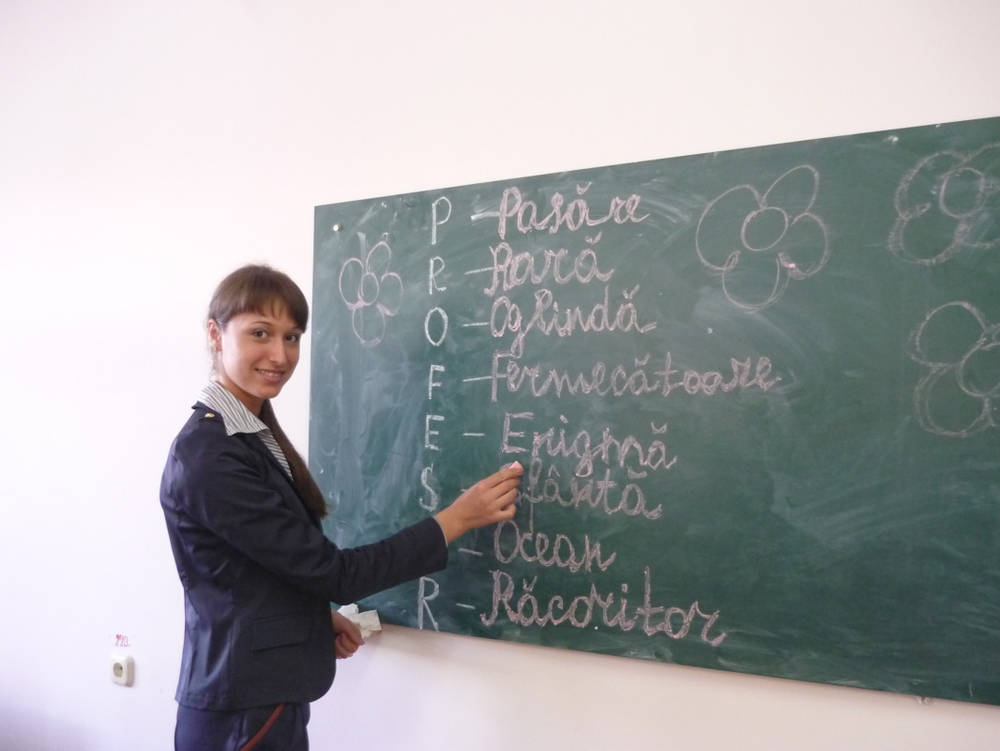 P - Pasăre
R - Rară
O - Oglindă
F - Fermecătoare
E - Enigmă
S Sfântă
- Ocean
R - Răcoritor